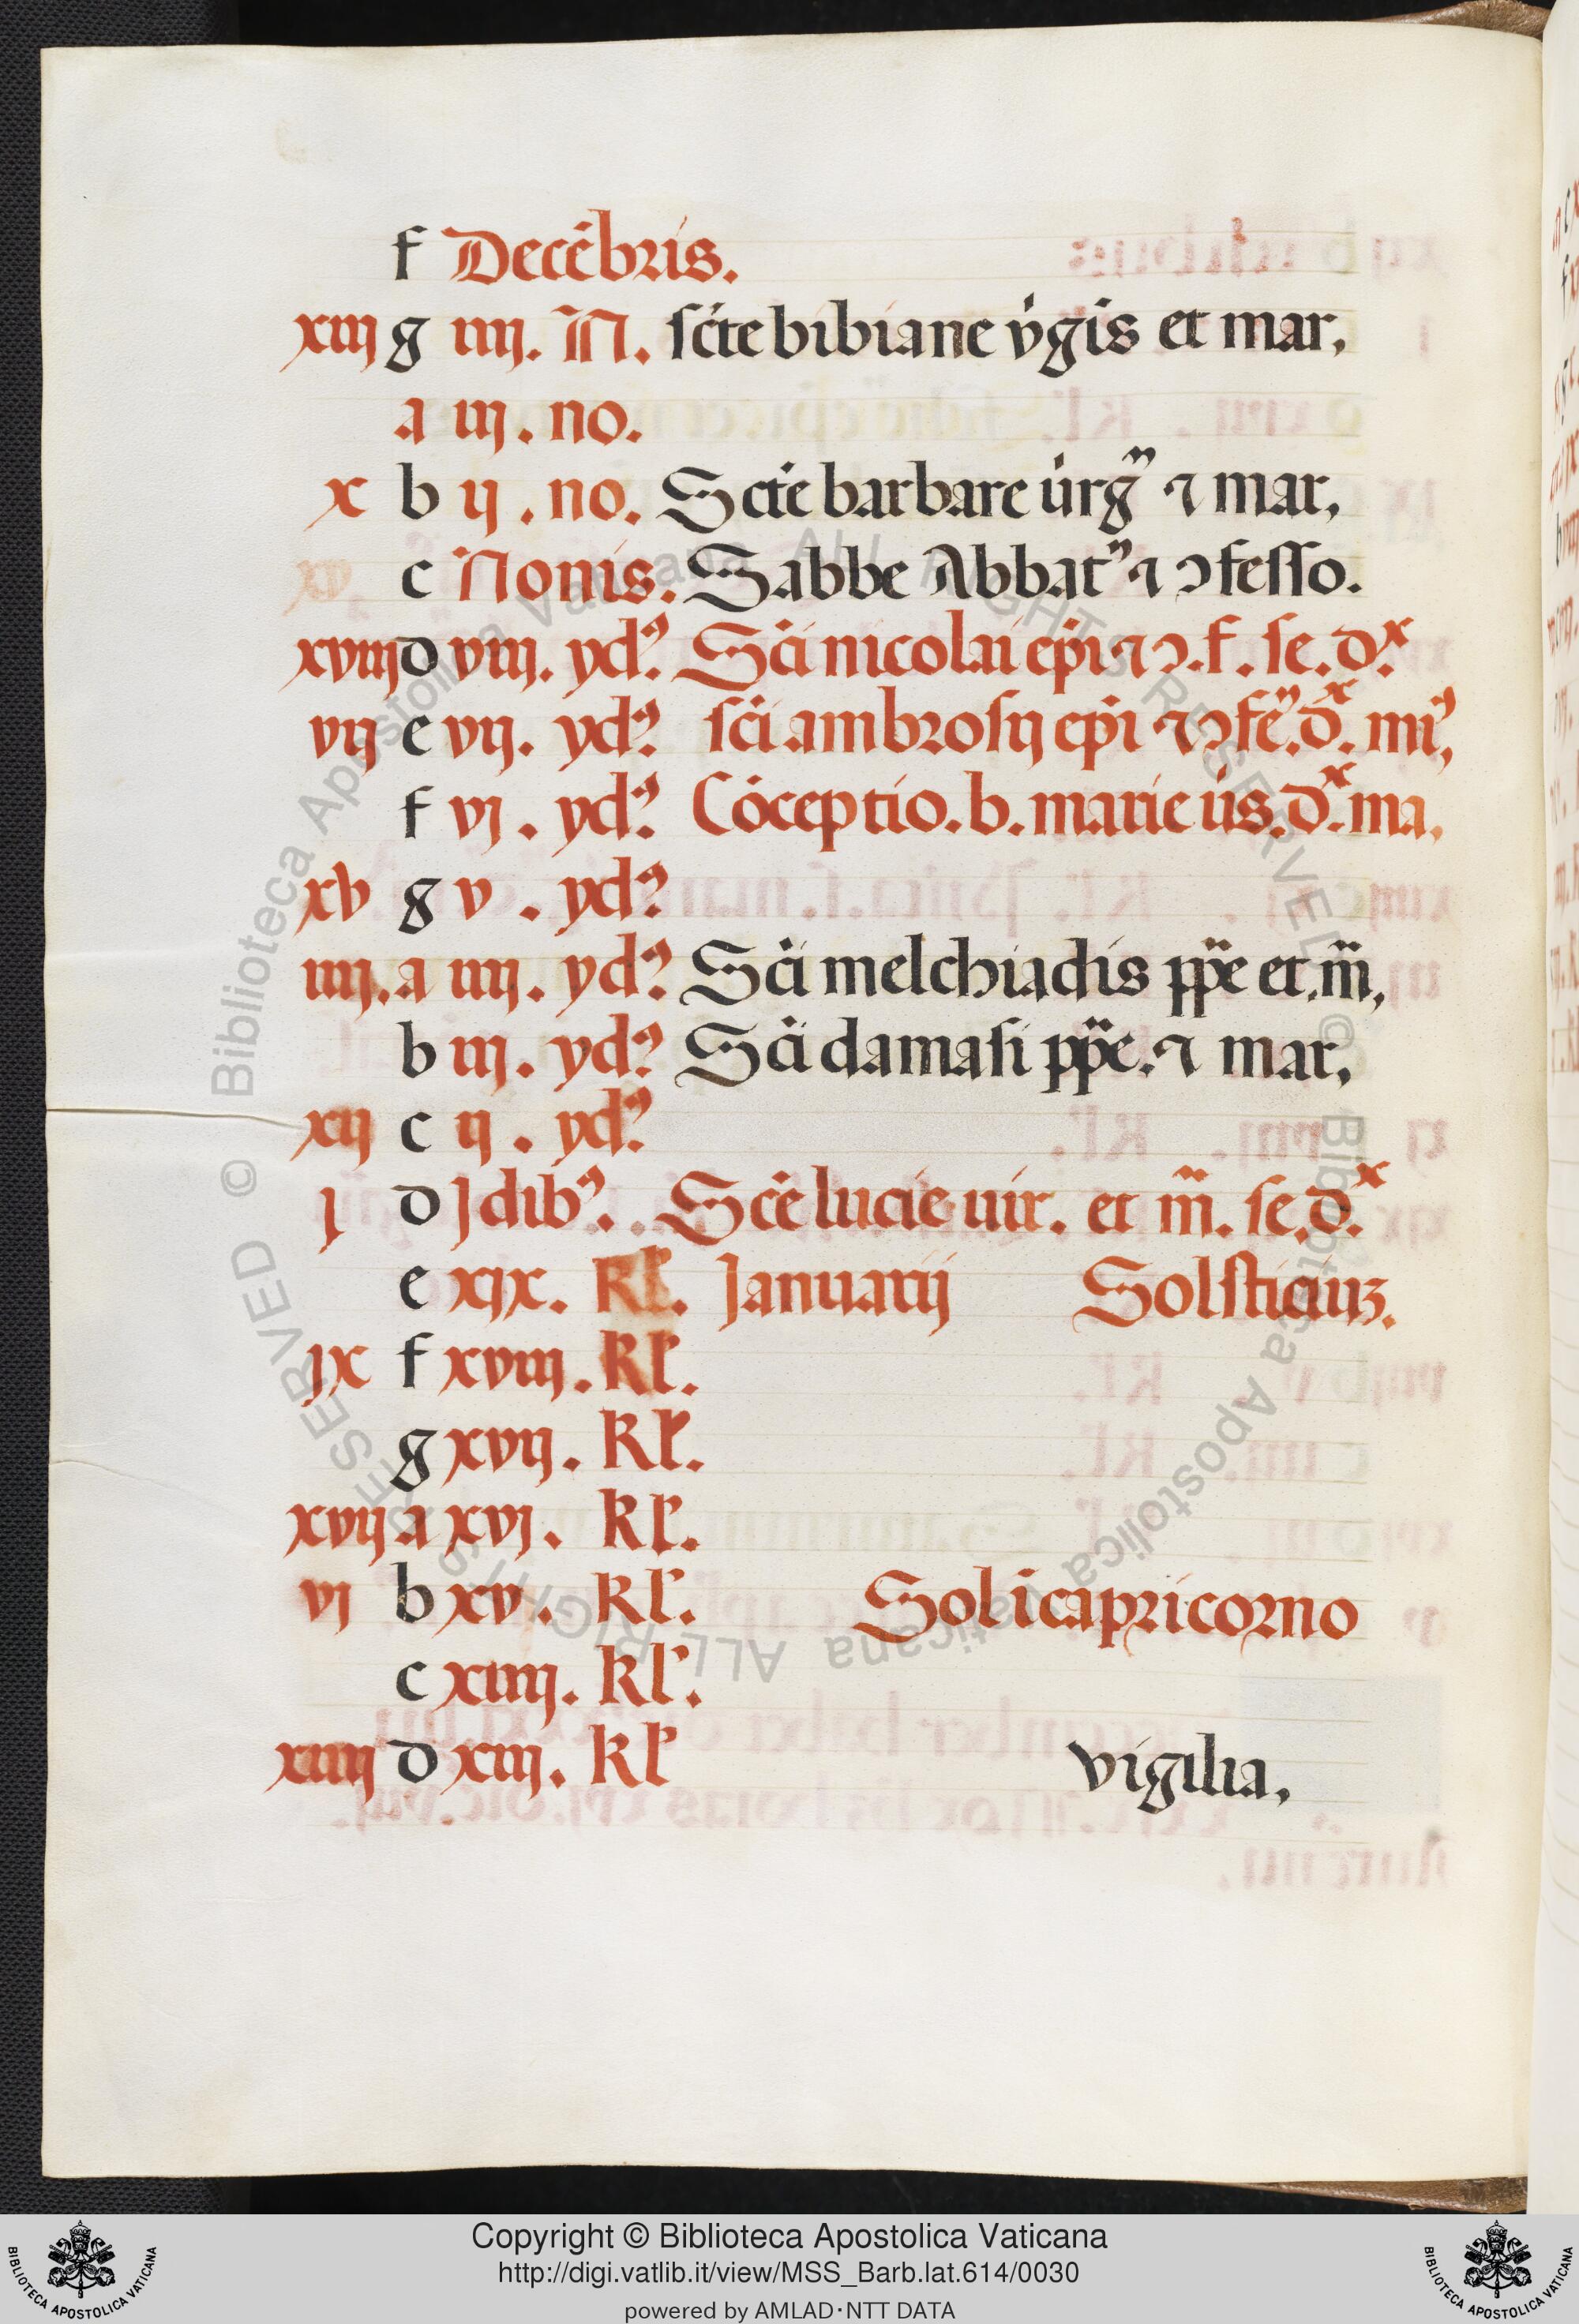 f Decēbris.
xiij g iiij. N. sc̄te bibiane v̇gis et mar,
a iij. no.
x b ij. no. Sctē barbare uirg̃ ⁊ mar,
c Nonis. Sabbe Abbat᷒ ⁊ ɔfesso.
xviij d viij. yd᷒. Sc̄i nicolai ep̄i ⁊ ɔ. f. se. dˣ.
vij e vij. yd᷒. sc̄i ambrosij ep̄i ⁊ ɔfe᷒. dˣ. mi᷒,
f vj. yd᷒. Cōceptio. b. marie u̇s. dˣ. ma.
xv g v. yd᷒.
iiij. a iiij. yd᷒. Sc̄i melchiadis pp̄e et. m̄,
b iij. yd᷒. Sc̄i damasi pp̄e. ⁊ mar,
xij c ij. yd᷒.
j d Jdib᷒. Sc̄e lucie uir. et m̄. se. dˣ.
e xjx. Kl̄. Januarij Solsticiuꝫ.
jx f xviij. Kl̄.
g xvij. Kl̄.
xvij a xvj. kl̄.
vj b xv. Kl̄. Sol i capricorno
c xiiij. kl̄.
xiiij d xiij. kl̄ vigilia,
© Biblioteca Apostolica Vaticana ALL RIGHTS RESERVED © Biblioteca Apostolica Vaticana ALL RIGHTS RESERVED
Copyright © Biblioteca Apostolica Vaticana
http://digi.vatlib.it/view/MSS_Barb.lat.614/0030
powered by AMLAD·NTT DATA
BIBLIOTECA APOSTOLICA VATICANA
BIBLIOTECA APOSTOLICA VATICANA